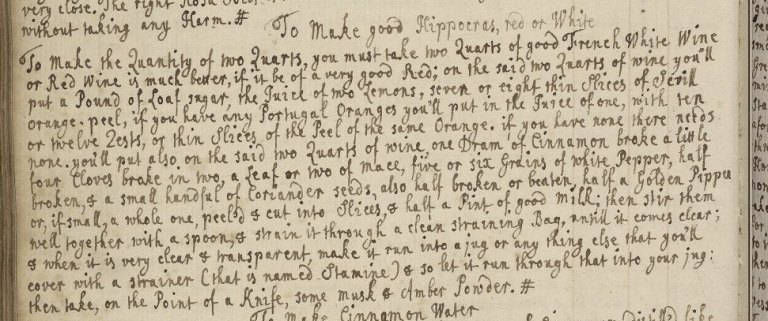 very close. The right
without taking any Harm. #
To Make good Hippocras, red or White
To Make the Quantity of two Quarts, you must take two Quarts of good French White Wine
or Red Wine is much better, if it be of a very good Red; on the said two Quarts of wine you'll
put a Pound of Loaf sugar, the Juice of two Lemons, seven or eight thin Slices of Sevill
orange-peel, if you have any Portugal Oranges you'll put in the Juice of one, with ten
or twelve Zests, or thin Slices of the Peel of the same Orange. if you have none there needs
none. you'll put also, on the said two Quarts of wine one Dram of Cinnamon broke a little
four Cloves broke in two, a Leaf or two of mace, five or six Grains of white Pepper, half
broken, & a small handful of Coriander seeds, also half broken or beaten, half a Golden Pippin
or, if small, a whole one, peel'd & cut into Slices, & half a Pint of good Milk; then stir them
well together with a spoon, & strain it through a clean straining Bag, untill it comes clear;
& when it is very clear & transparent, make it run into a jug or any thing else that you'll
cover with a strainer (that is named Stamine) & so let it run through that into your jug:
then take, on the Point of a Knife, some musk & Amber Powder. #
To Make Cinnamon Water
like